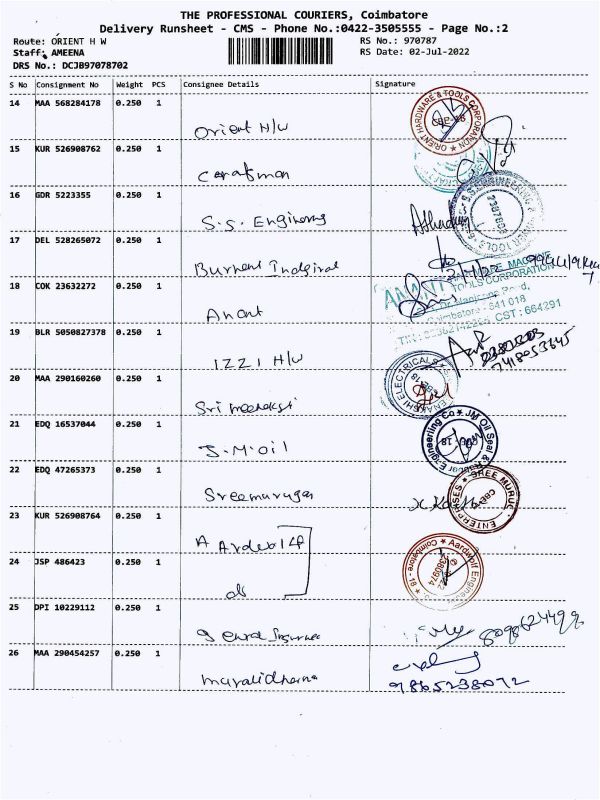 THE PROFESSIONAL COURIERS, Coimbatore
Delivery Runsheet - CMS - Phone No.:0422-3505555 - Page No.:2
Route: ORIENT H W
RS No.: 970787
Staff: AMEENA
RS Date: 02-Jul-2022
DRS No.: DCJB97078702
S No Consignment No Weight PCS Consignee Details Signature
14 MAA 568284178 0.250 1
Orient H/W
ORIENT HARDWARE & TOOLS CORPORATION
15 KUR 526908762 0.250 1
16 GDR 5223355 0.250 1
S.S. Engineering
17 DEL 528265072 0.250 1
18 COK 23632272 0.250 1
Anant
TOOLS CORPORATION
641 018
CST : 664291
19 BLR 5050827378 0.250 1
IZZI H/W
7418053645
20 MAA 290160260 0.250 1
Sri meenakshi
ELECTRICALS
21 EDQ 16537044 0.250 1
J.M.Oil
JM Oil Seal & Rubber Engineering Co
22 EDQ 47265373 0.250 1
Sreemurugan
SREE MURUGAN ENTERPRISES
23 KUR 526908764 0.250 1
24 JSP 486423 0.250 1
do
Coimbatore - 18
25 DPI 10229112 0.250 1
8098624499
26 MAA 290454257 0.250 1
muralidharna
9865238072